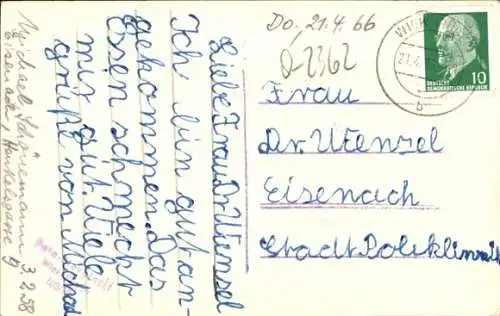 Do. 21.4.66
D-2362
10
DEUTSCHE
DEMOKRATISCHE REPUBLIK
Frau
Dr. Wenzel
Eisenach
Stadt Poliklinik
Liebe Frau Dr. Wensel
Ich bin gut an-
gekommen. Das
Essen schmeckt
mir gut. Viele
grüße von Michael
Michael Schönemann 3.2.58
Eisenach,